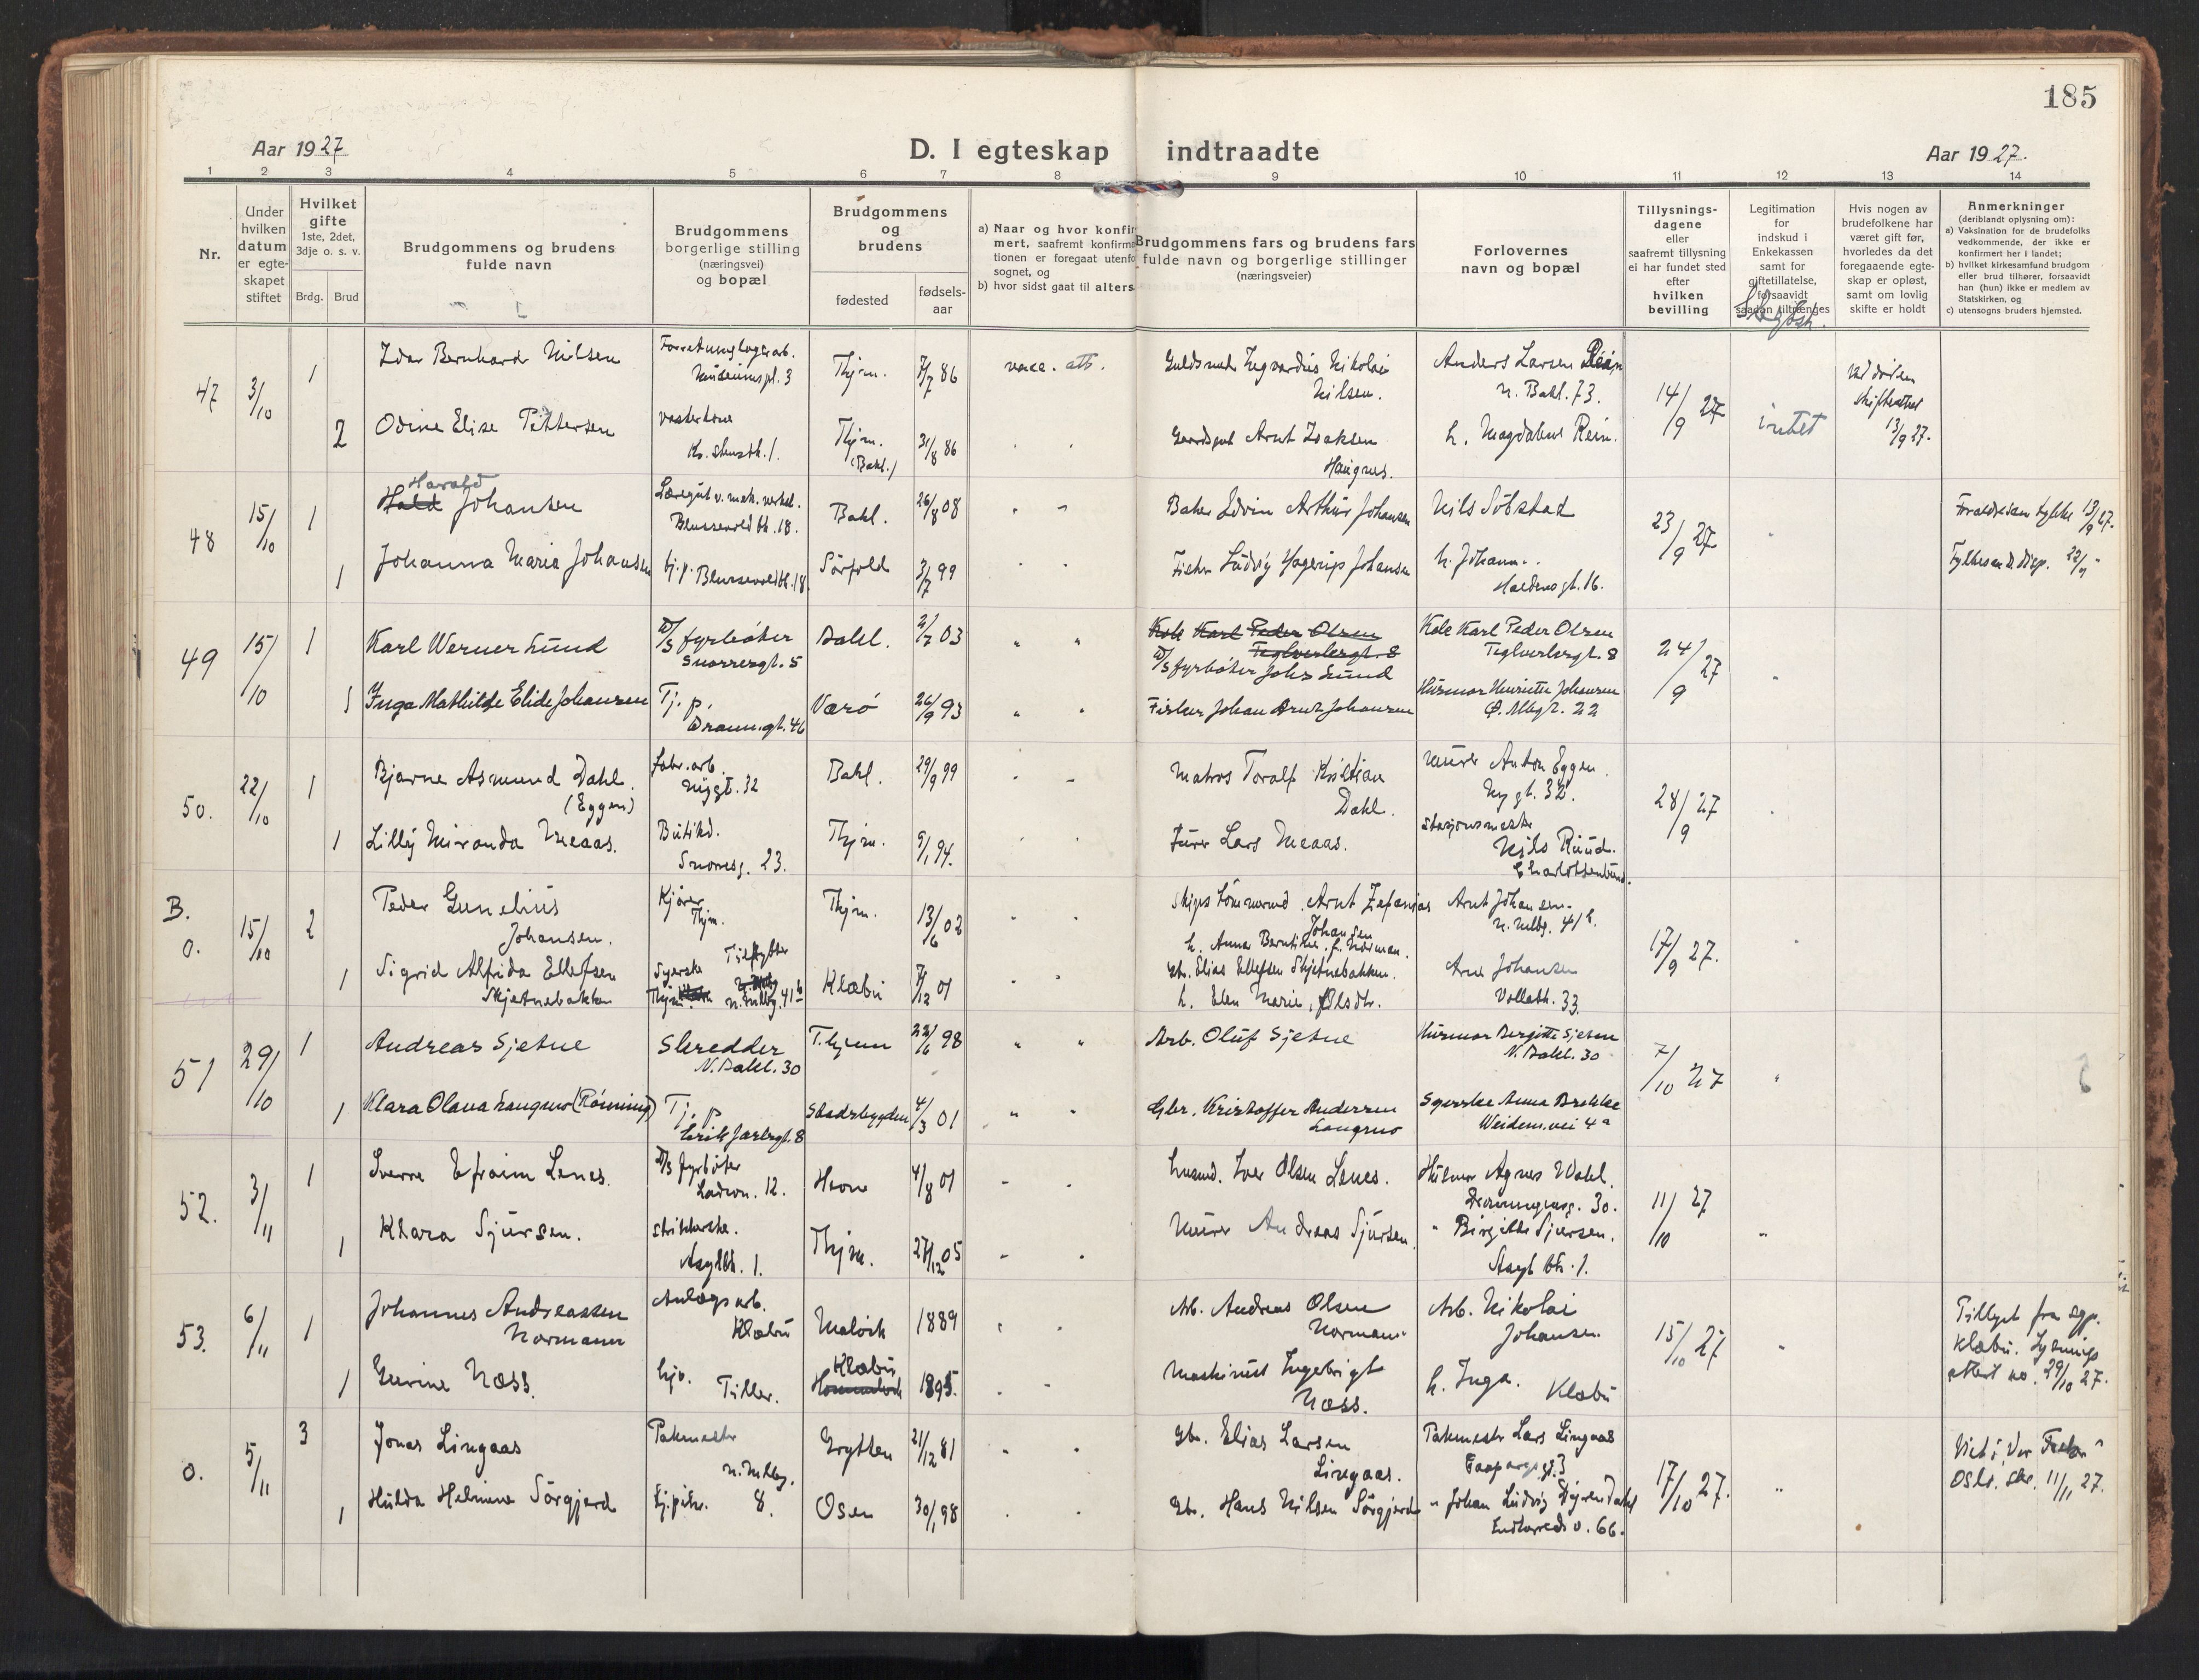 185
Aar 1927
D. I egteskap indtraadte
Aar 1927.
1 2 3 4 5 6 7 8 9 10 11 12 13 14
Nr.
Under
hvilken
datum
er egte-
skapet
stiftet
Hvilket
gifte
1ste, 2det,
3dje o. s. v.
Brdg. Brud
Brudgommens og brudens
fulde navn
Brudgommens
borgerlige stilling
(næringsvei)
og bopæl
Brudgommens
og
brudens
fødested
fødsels-
aar
a) Naar og hvor konfir
mert, saafremt konfirma
tionen er foregaat utenfo
sognet, og
b) hvor sidst gaat til alters
Brudgommens fars og brudens fars
fulde navn og borgerlige stillinger
(næringsveier)
Forlovernes
navn og bopæl
Tillysnings-
dagene
eller
saafremt tillysning
ei har fundet sted
efter
hvilken
bevilling
Legitimation
for
indskud i
Enkekassen
samt for
giftetillatelse,
forsaavidt
saadan tiltrænges
Hvis nogen av
brudefolkene har
været gift før,
hvorledes da det
foregaaende egte-
skap er opløst,
samt om lovlig
skifte er holdt
Anmerkninger
(deriblandt oplysning om):
a) Vaksination for de brudefolks
vedkommende, der ikke er
konfirmert her i landet;
b) hvilket kirkesamfund brudgom
eller brud tilhører, forsaavidt
han (hun) ikke er medlem av
Statskirken, og
c) utensogns bruders hjemsted.
47 3/10 1 Idar Bernhard Nilsen
Museumspl. 3
Thjm. 7/7 86 vacc. att.
Nikolai
Nilsen.
Anders Larsen Rein
n. Bakl. 73.
14/9 27 intet
13/9 27.
2 Odine Elise Pettersen
Thjm.
(Bakl.)
31/8 86
Arnt Isaksen
Haugnes.
h. Magdalene Rein.
48 15/10 1 Harald
Hald Johansen
Læregut v. mek. verkst.
Blussuvold bk. 18.
Bakl. 26/8 08
Baker Edvin Arthur Johansen
Nils Sôbstad
23/9 27
1 Johanna Marie Johansen
tj. p. Blussuvoldbk. 18
Sörfold 3/7 99
Fisker Ludvig Hagerup Johansen
h. Johann..
gt. 16.
49 15/10 1 Karl Werner Lund
D/S fyrbøter
Snorresgt. 5
Bakl. 2/7 03
Kole Karl Peder Olsen
Teglverksgt. 8
D/S fyrbøter Johs Lund
Kole Karl Peder Olsen
Teglverksgt. 8
24/9 27
1 Inga Mathilde Elide Johansen
Tj. p.
Dronn.gt. 46
Værö 26/9 93
Fisker Johan Arnt Johansen
Husmor Henriette Johansen
Ø. Mbgt. 22
50. 22/10 1 Bjarne Asmund Dahl.
(Eggen)
fabr. arb.
Nygt. 32
Bakl. 29/9 99
Matros Toralf Kristian
Dahl.
Murer Anton Eggen.
Ny gt. 32.
28/9 27
1 Lilly Miranda Meaas.
Butikd.
Snorresg. 23.
Thjm. 9/1 94.
Furer Lars Meaas.
Stasjonsmester
Nils Ruud.
Charlottenlund.
B.
0. 15/10 2 Peder Gunelius
Johansen.
Kjører
Thjm.
Thjm. 13/6 02
Arnt Zefanias
Johansen
h. Anna Berntine f. Norman.
Arnt Johansen
n. Mbg. 41 b.
17/9 27.
1 Sigrid Alfrida Ellefsen
Skjetnebakken
Syerske
Thjm. n. Mbg. 41 b
Klæbu 7/12 01
Gbr. Elias Ellefsen Skjetnebakken.
h. Elen Marie, Olsdtr.
Arne Johansen
Vollabk. 33.
51 29/10 1 Andreas Sjetne
Skredder
N. Bakl. 30
T.hjem 22/6 98
Arb. Oluf Sjetne
Husmor Bergitte Sjetne
N. Bakl. 30
7/10 27
1 Klara Olava Langmo (Rönning)
Tj. p
Erik Jarlsgt. 8
Stadsbygden 4/3 01
Gbr. Kristoffer Andersen
Langmo
Syerske Anna Brekke
Weidem.vei 4a
52. 3/11 1 Sverre Efraim Lenes.
D/S fyrbøter
Ladevn. 12.
Hevne 4/8 01
husmd. Iver Olsen Lenes.
Husmor Agnes Wahl.
Dronningensg. 30.
11/10 27
1 Klara Sjursen.
strikkerske.
Asylbk. 1.
Thjm. 27/12 05
Murer Andreas Sjursen.
" Birgitte Sjursen.
Asylbk. 1.
53. 6/11 1 Johannes Andreassen
Normann
Anlægsarb.
Klæbu
Malvik 1889
Arb. Andreas Olsen
Normann
Arb. Nikolai
Johansen.
15/10 27
Tillyst fra sgp.
Klæbu. Lysnings
attest no. 29/10 27.
1 Gurine Næss.
hjv. Tiller.
Klæbu
1895.
Maskinist Ingebrigt
Næss.
h. Inga. Klæbu
0. 5/11 3 Jonas Lingaas
Pakmester
n. Mbg.
Grytten 21/12 81
Gbr. Elias Larsen
Lingaas.
Pakmester Lars Lingaas
17/10 27.
Viet i Vor
Oslo. skr. 11/11 27.
1 Hulda Helmine Sörgjerd
8.
Osen 30/1 98
Gbr. Hans Nilsen Sörgjerd
" Johan Ludvig
66.